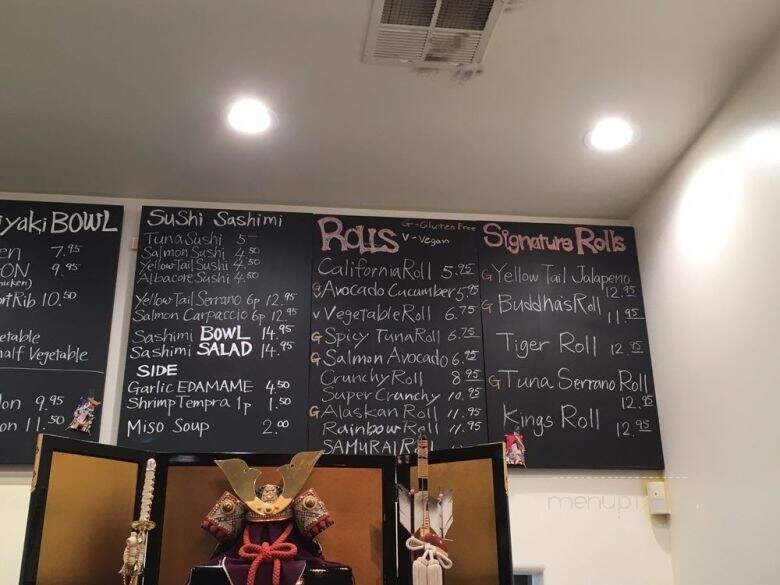 yaki BOWL
en 7.95
ON 9.95
rt Rib 10.50
etable
half Vegetable
on 9.95
on 11.50
Sushi Sashimi
Tuna Sushi 5-
Salmon Sushi 4.50
Yellow Tail Sushi 4.50
Albacore Sushi 4.50
Yellow Tail Serrano 6p 12.95
Salmon Carpaccio 6p 12.95
Sashimi BOWL 14.95
Sashimi SALAD 14.95
SIDE
Garlic EDAMAME 4.50
Shrimp Tempra 1p 1.50
Miso Soup 2.00
ROLLS
G - Gluten Free
V - Vegan
California Roll 5.25
Avocado Cucumber 5.75
V Vegetable Roll 6.75
G Spicy Tuna Roll 6.75
G Salmon Avocado 6.75
Crunchy Roll 8.95
Super Crunchy 10.95
G Alaskan Roll 11.95
Rainbow Roll 11.95
SAMURAI R
Signature Rolls
G Yellow Tail Jalapeno
12.95
G Buddhas Roll
11.95
Tiger Roll 12.95
G Tuna Serrano Roll
12.95
Kings Roll 12.95
menupi